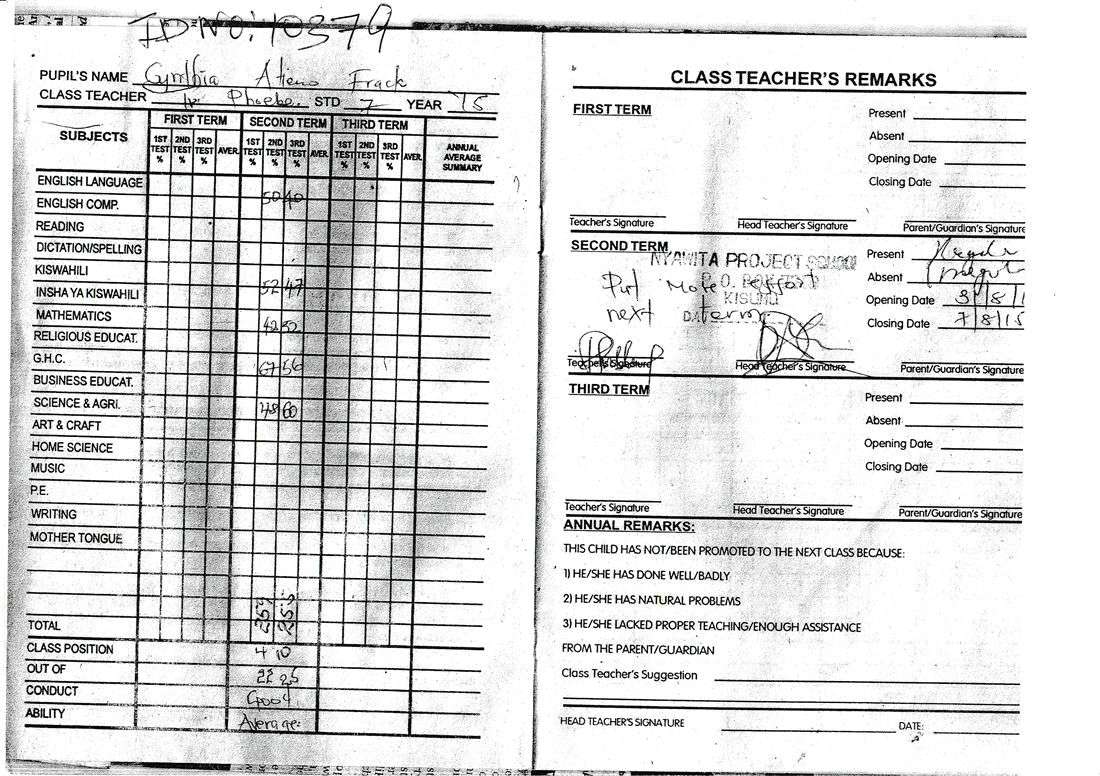 ID NO: 10379
PUPIL'S NAME Cynthia Atieno Frack
CLASS TEACHER Phoebe STD 7 YEAR 15
SUBJECTS
FIRST TERM SECOND TERM THIRD TERM
1ST TEST % 2ND TEST % 3RD TEST % AVER. 1ST TEST % 2ND TEST % 3RD TEST % AVER. 1ST TEST % 2ND TEST % 3RD TEST % AVER. ANNUAL AVERAGE SUMMARY
ENGLISH LANGUAGE
50 40
ENGLISH COMP.
READING
DICTATION/SPELLING
KISWAHILI
52 47
INSHA YA KISWAHILI
MATHEMATICS
42 52
RELIGIOUS EDUCAT.
G.H.C.
67 56
BUSINESS EDUCAT.
SCIENCE & AGRI.
48 60
ART & CRAFT
HOME SCIENCE
MUSIC
P.E.
WRITING
MOTHER TONGUE
TOTAL 255
CLASS POSITION 4 10
OUT OF 22 25
CONDUCT Good
ABILITY Average
CLASS TEACHER'S REMARKS
FIRST TERM
Present
Absent
Opening Date
Closing Date
Teacher's Signature Head Teacher's Signature Parent/Guardian's Signature
SECOND TERM
NYAWITA PROJECT SCHOOL
P.O. BOX
KISUMU
DATE
Put More effort
next term
Present
Absent
Opening Date 3/8/1
Closing Date 7/8/15
Teacher's Signature Head Teacher's Signature Parent/Guardian's Signature
THIRD TERM
Present
Absent
Opening Date
Closing Date
Teacher's Signature Head Teacher's Signature Parent/Guardian's Signature
ANNUAL REMARKS:
THIS CHILD HAS NOT/BEEN PROMOTED TO THE NEXT CLASS BECAUSE:
1) HE/SHE HAS DONE WELL/BADLY
2) HE/SHE HAS NATURAL PROBLEMS
3) HE/SHE LACKED PROPER TEACHING/ENOUGH ASSISTANCE
FROM THE PARENT/GUARDIAN
Class Teacher's Suggestion
HEAD TEACHER'S SIGNATURE DATE: